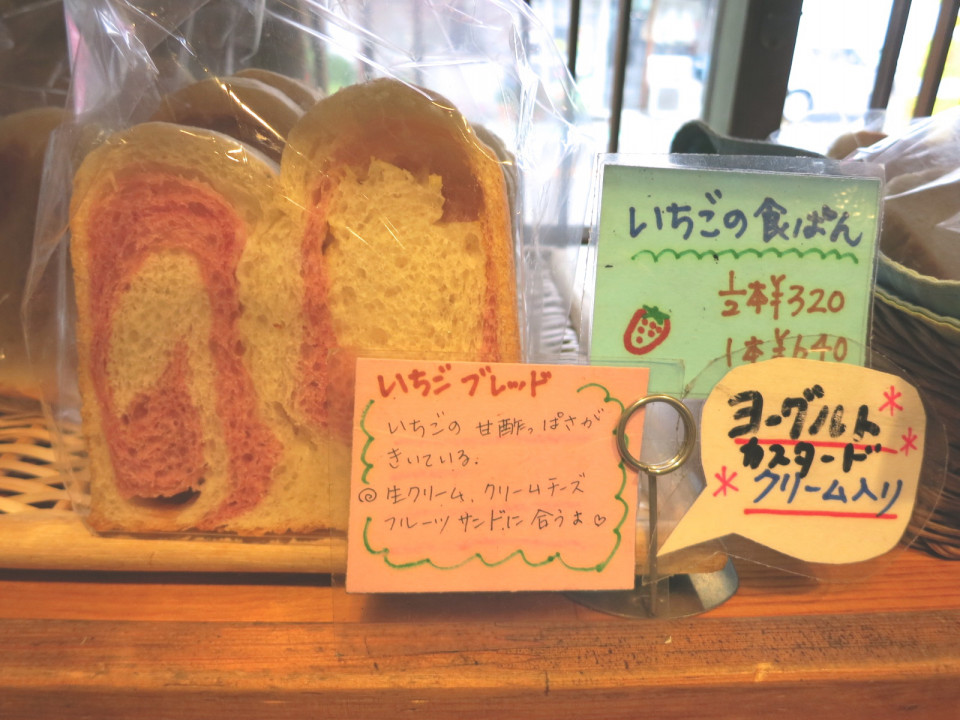 いちごの食ぱん
1/2本¥320
1本¥640
いちごブレッド
いちごの甘酢っぱさが
きいている.
◎生クリーム、クリームチーズ
フルーツサンドに合うよ♡
ヨーグルト
カスタード
クリーム入り